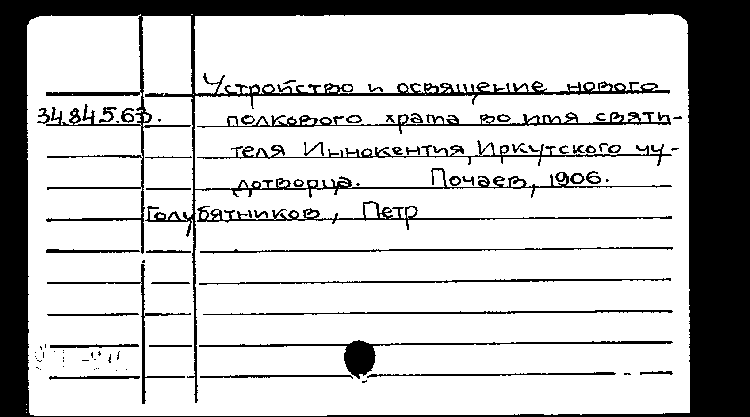 Устройство и освящение нового
34.845.63. полкового храма во имя святи-
теля Иннокентия, Иркутского чу-
дотворца. Почаев, 1906.
Голубятников, Петр